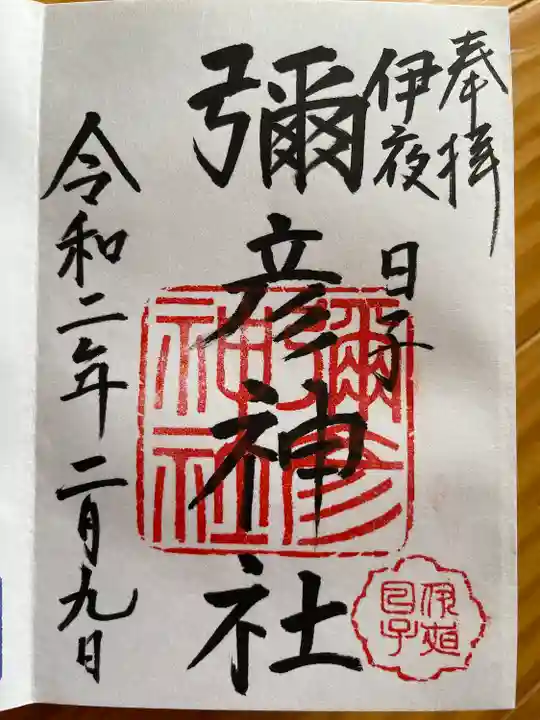 奉拝
伊夜日子
彌彦神社
令和二年二月九日
彌彦
神社
伊夜
日子